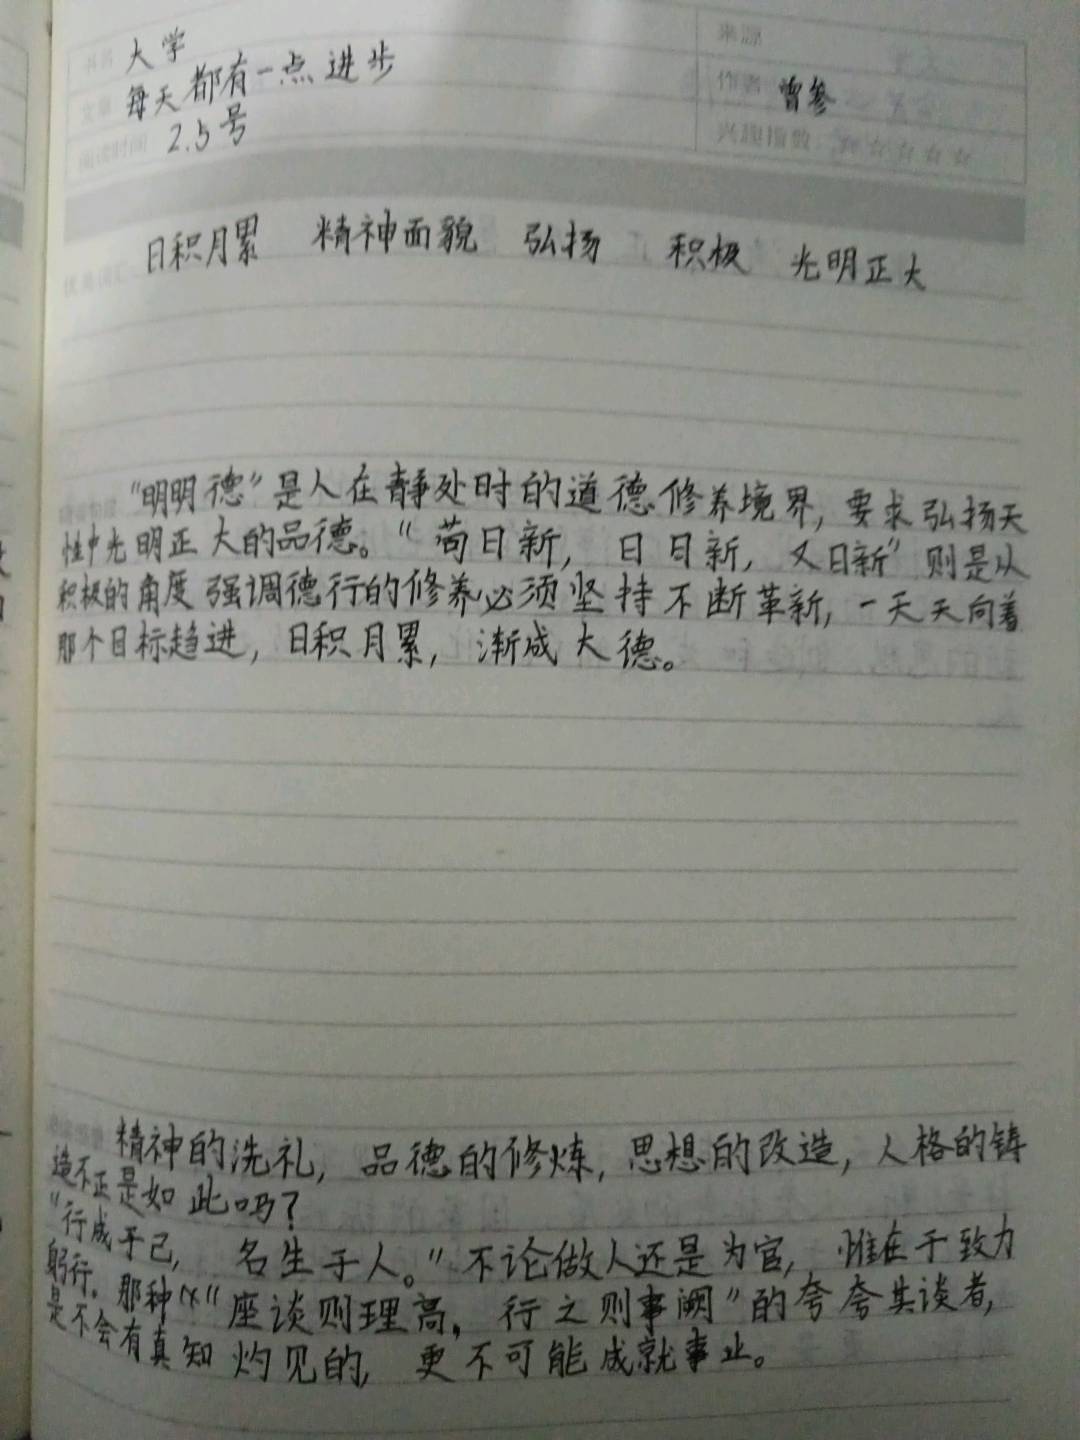 书名 大学
来源
文章 每天都有一点进步
作者 曾参
阅读时间 2.5号
兴趣指数 ☆☆☆☆☆
日积月累 精神面貌 弘扬 积极 光明正大
"明明德"是人在静处时的道德修养境界，要求弘扬天
性中光明正大的品德。"苟日新，日日新，又日新"则是从
积极的角度强调德行的修养必须坚持不断革新，一天天向着
那个目标趋进，日积月累，渐成大德。
精神的洗礼，品德的修炼，思想的改造，人格的铸
造不正是如此吗？
"行成于己，名生于人。"不论做人还是为官，惟在于致力
躬行。那种"座谈则理高，行之则事阙"的夸夸其谈者，
是不会有真知灼见的，更不可能成就事业。